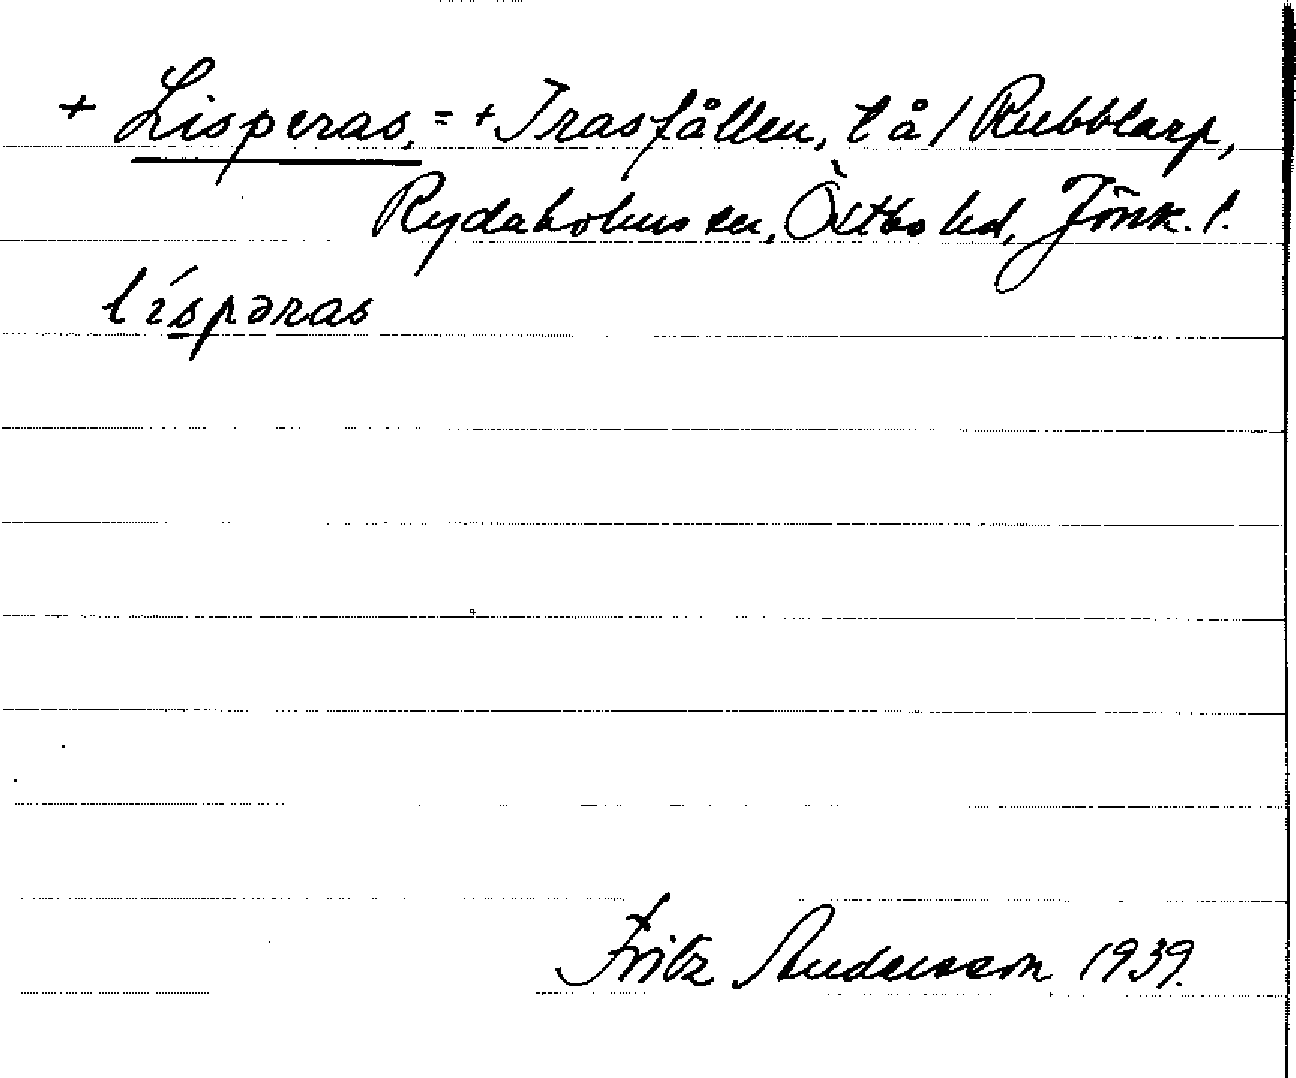 + Lisperas, = + Trasfållen, t å / Rubblarp,
Rydaholms sn, Östbo hd, Jönk. l.
líspəras
Fritz Andersson 1939.